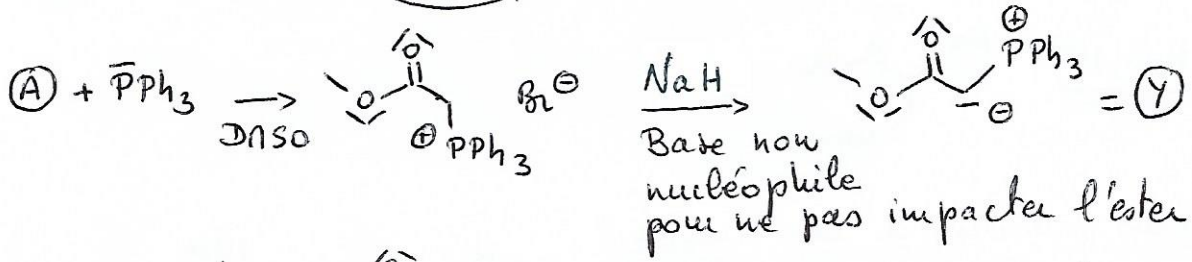 Ⓐ + P̅Ph₃ → O O ⊕ PPh₃ Br⊖ NaH → O O ⊕ PPh₃ ⊖ = Ⓨ
DMSO
Base non
nucléophile
pour ne pas impacter l'ester